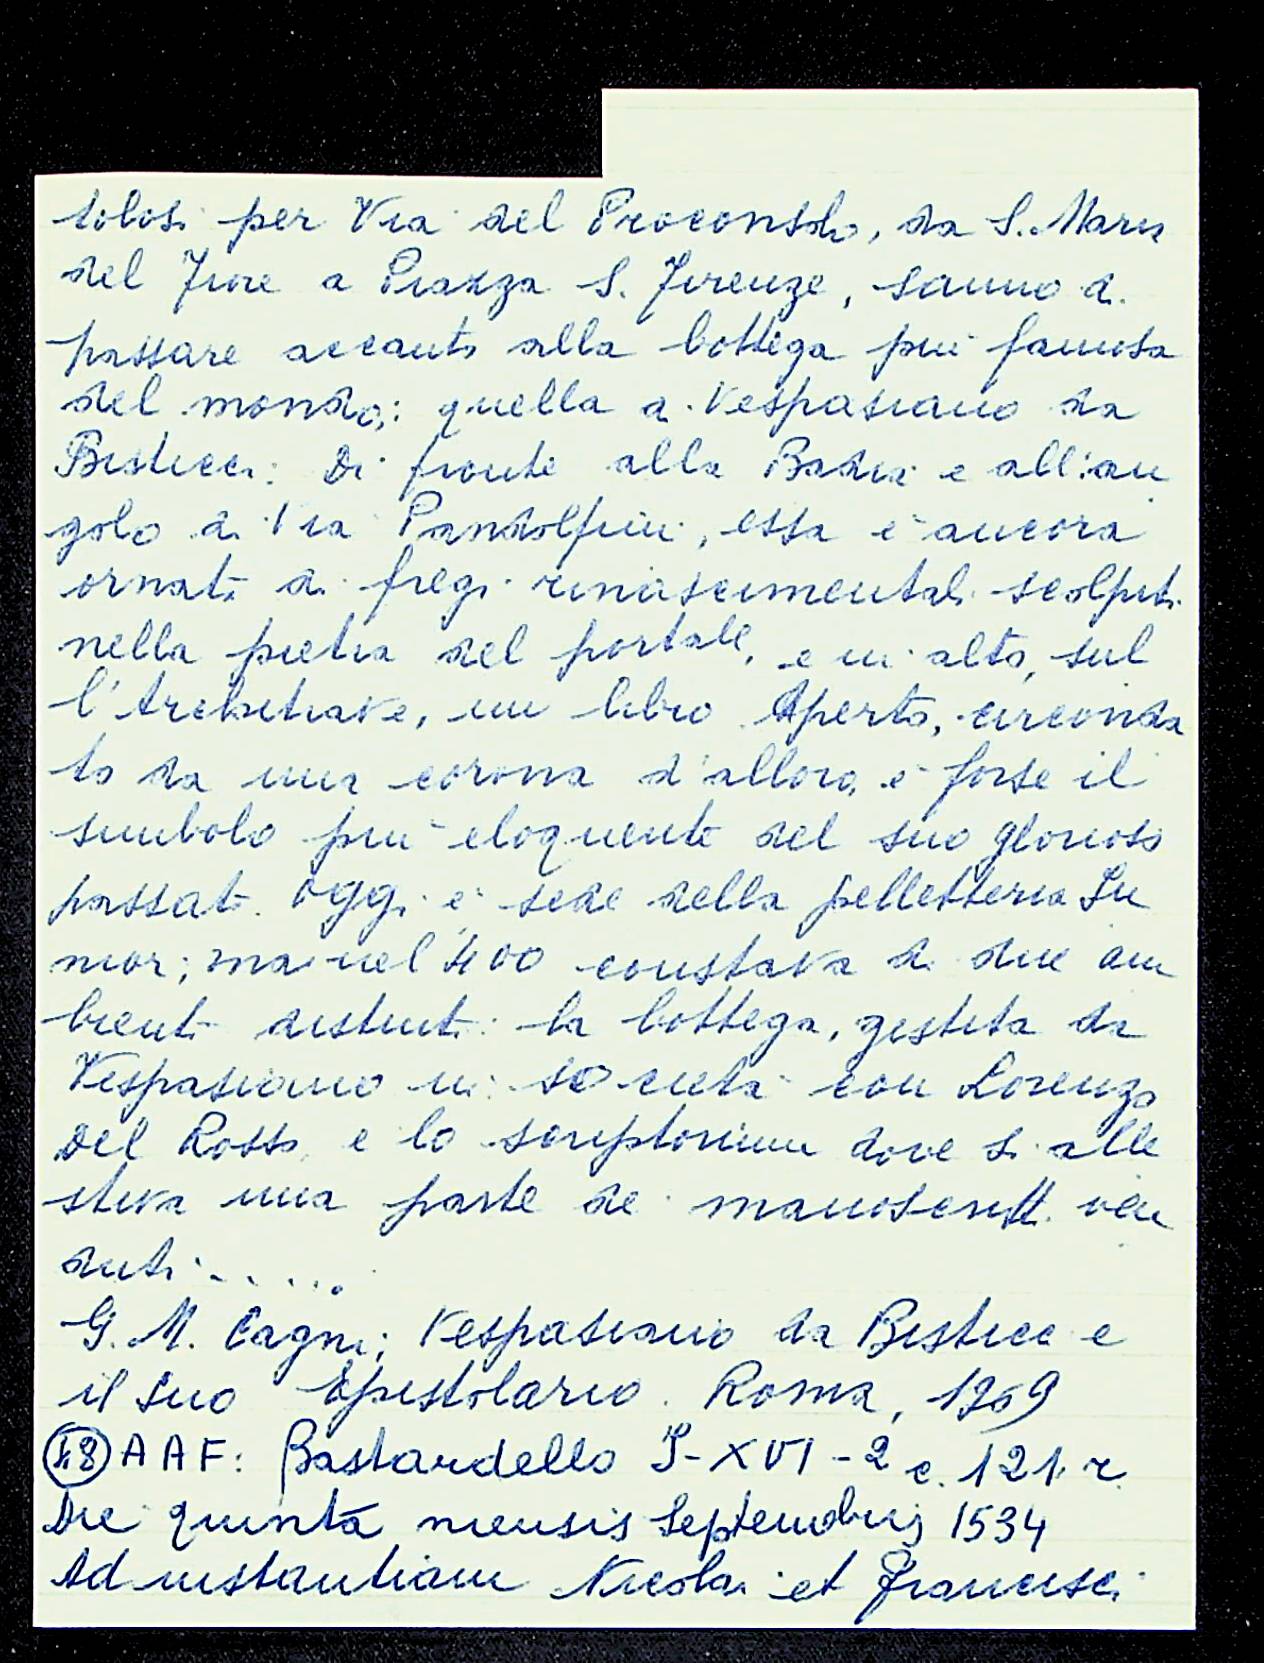 tolosi per Via del Proconsolo, da S. Maria
del Fiore a Piazza S. Firenze, sanno di
passare accanto alla bottega più famosa
del mondo: quella di Vespasiano da
Bisticci: Di fronte alla Badia e all'an
golo di Via Pandolfini, essa è ancora
ornata di fregi rinascimentali scolpiti
nella pietra del portale, e in alto, sul
l'Architrave, un libro Aperto, circonda
to da una corona d'alloro, è forse il
simbolo più eloquente del suo glorioso
passato. Oggi è sede della pelletteria Su
mor; ma nel '400 constava di due am
bienti distinti: la bottega, gestita da
Vespasiano in società con Lorenzo
Del Rosso, e lo scriptorium dove si alle
stiva una parte dei manoscritti ven
duti.....
G. M. Cagni; Vespasiano da Bisticci e
il suo Epistolario. Roma, 1969
48 AAF: Bastardello I-XVI-2 c. 121. r.
Die quinta mensis Septembrij 1534
Ad instantiam Nicolai et Francisci